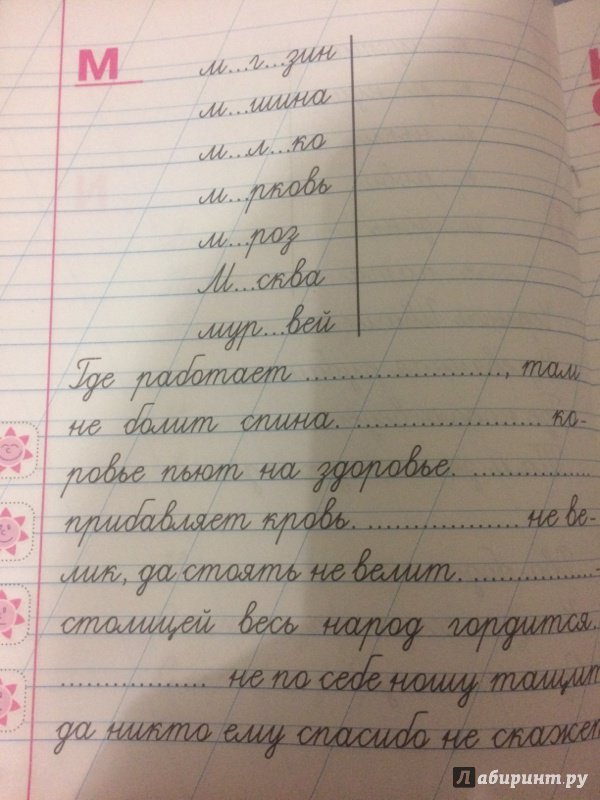 М
м...г...зин
м...шина
м...л...ко
м...рковь
м...роз
М...сква
мур...вей
Где работает ........................, там
не болит спина. ...................... ко-
ровье пьют на здоровье. ..............
прибавляет кровь. .................. не ве-
лик, да стоять не велит. ..............-
столицей весь народ гордится.
.................. не по себе ношу тащит
да никто ему спасибо не скажет
Лабиринт.ру